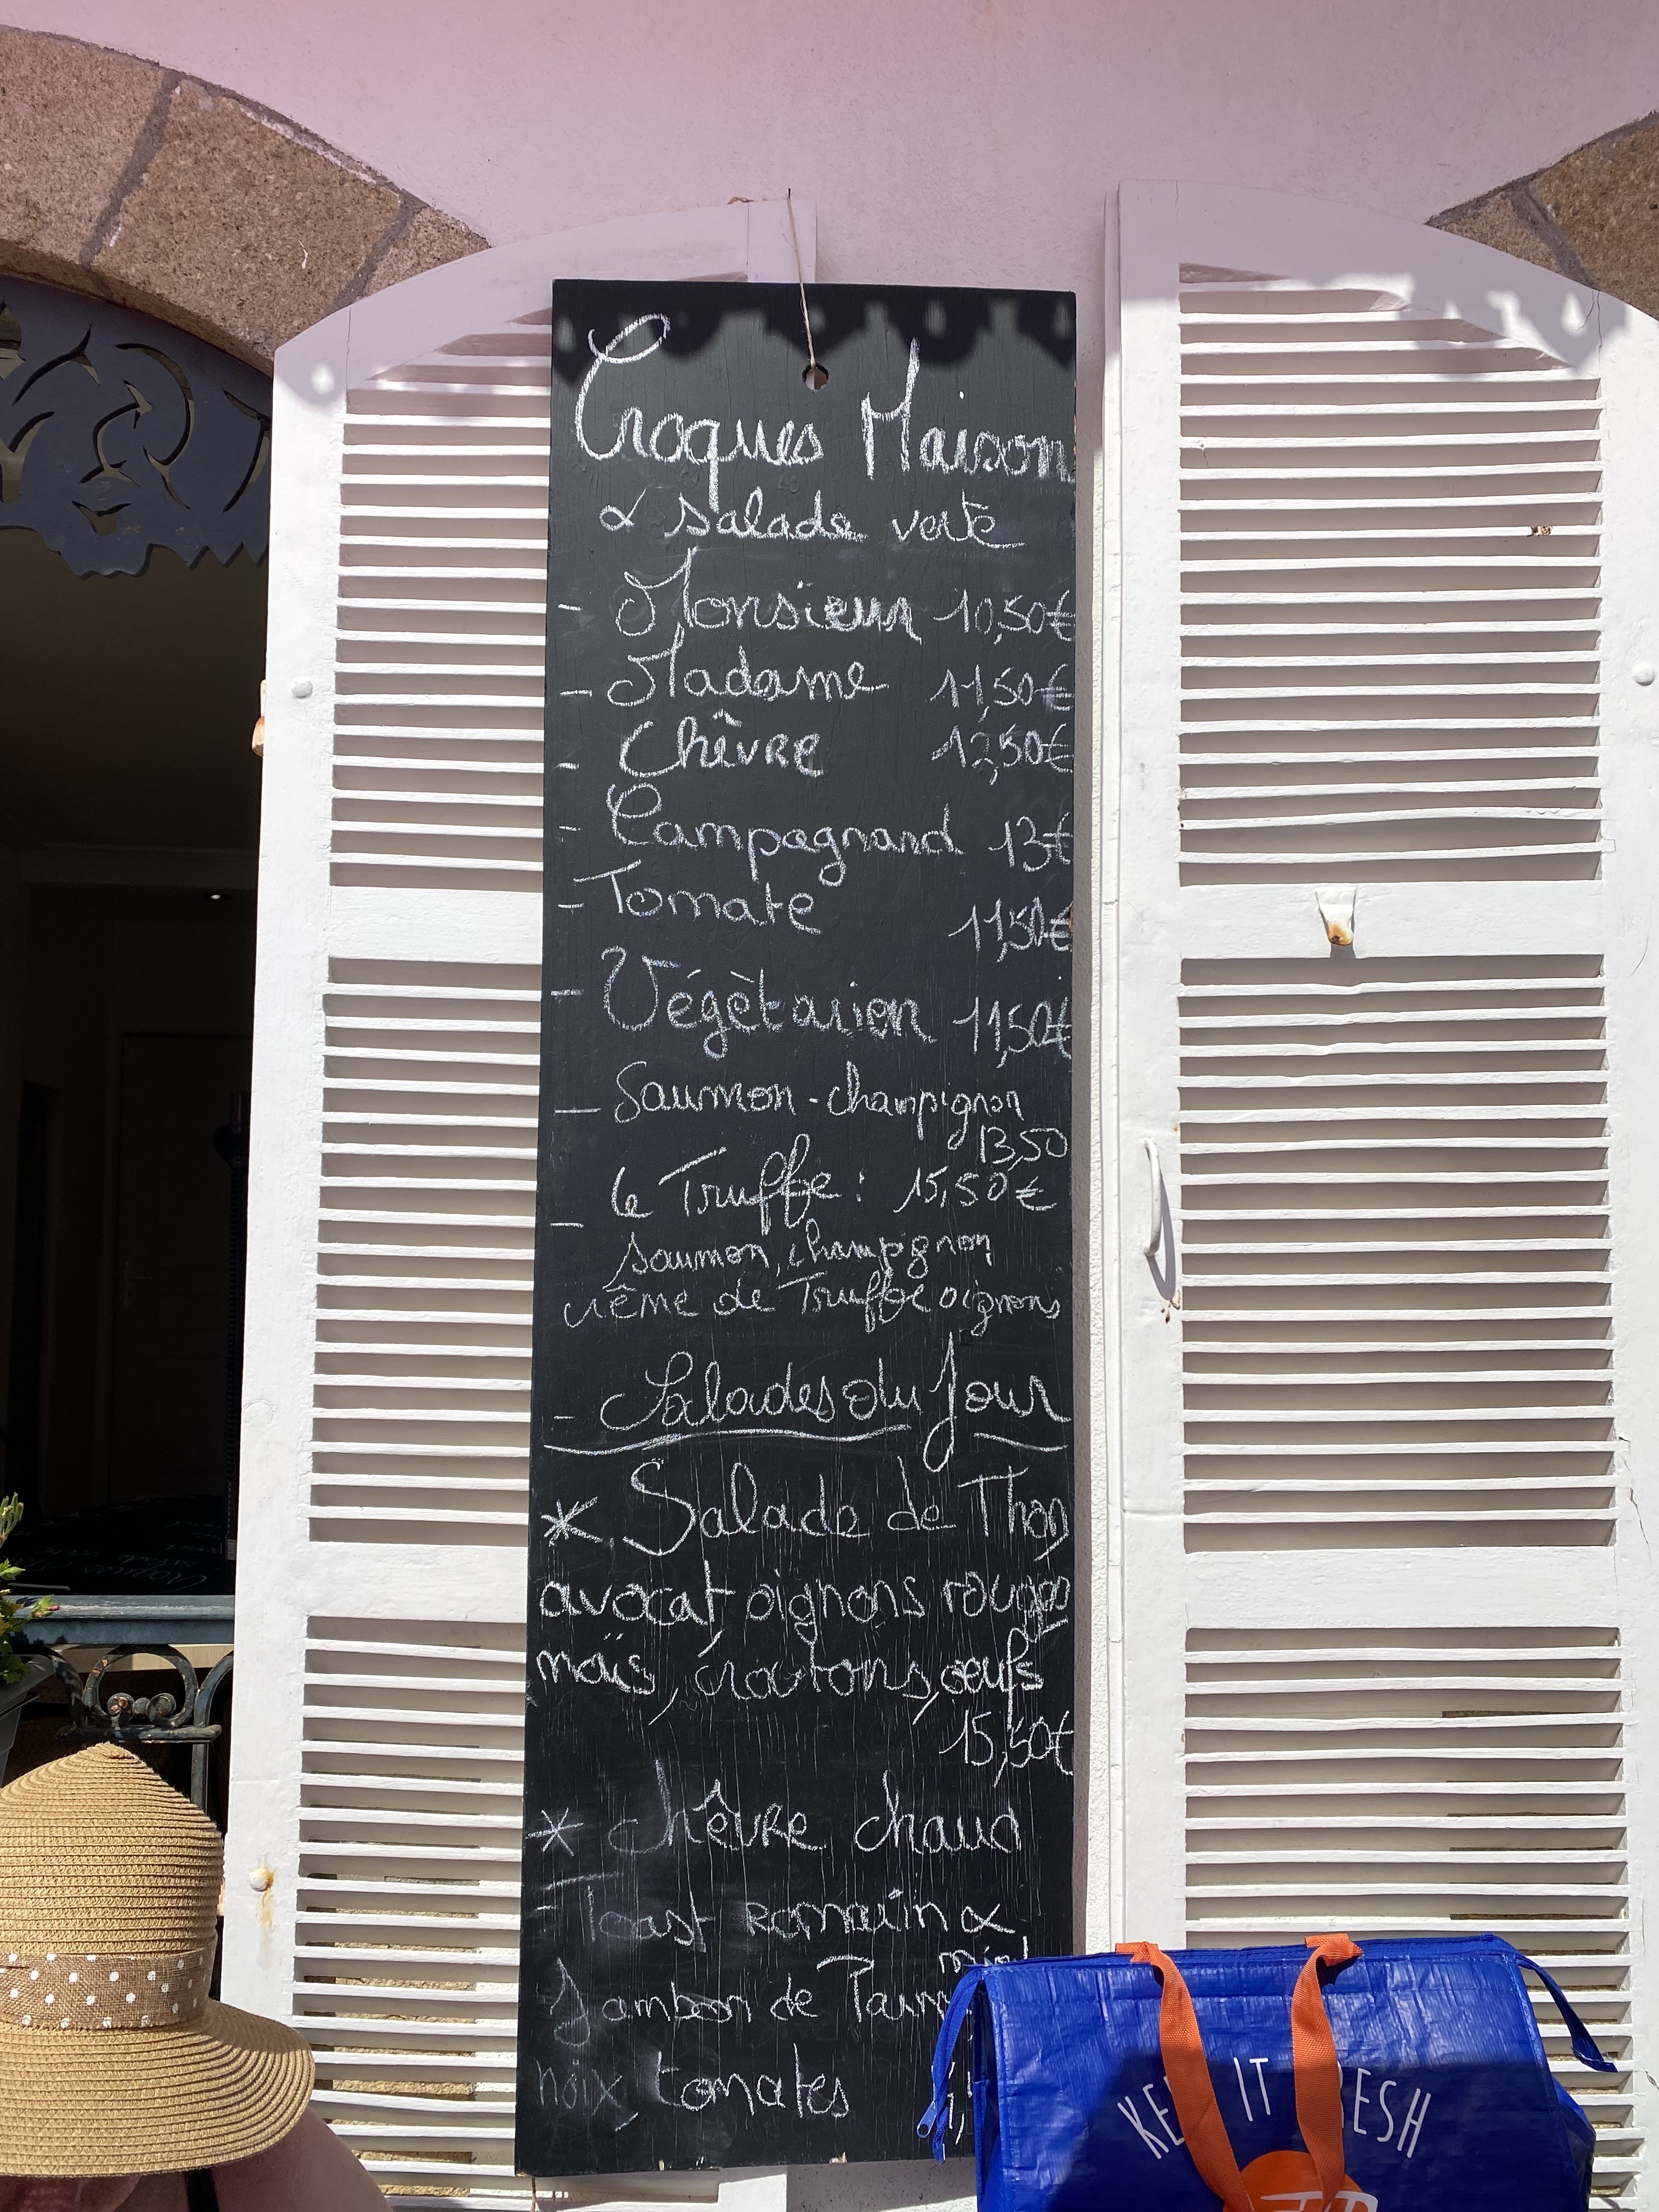 Croques Maison
& salade verte
- Monsieur 10,50€
- Madame 11,50€
- Chêvre 12,50€
- Campagnard 13€
- Tomate 11,50€
- Végètarien 11,50€
- Saumon-champignon
13,50
- Le Truffe : 15,50€
saumon, champignon
crême de Truffe oignons
- Salades du Jour
* Salade de Thon
avocat oignons rouges
maïs, croutons, oeufs
15,50€
* chêvre chaud
- Toast romarin &
miel
Jambon de
noix, tomates
KEEP IT FRESH